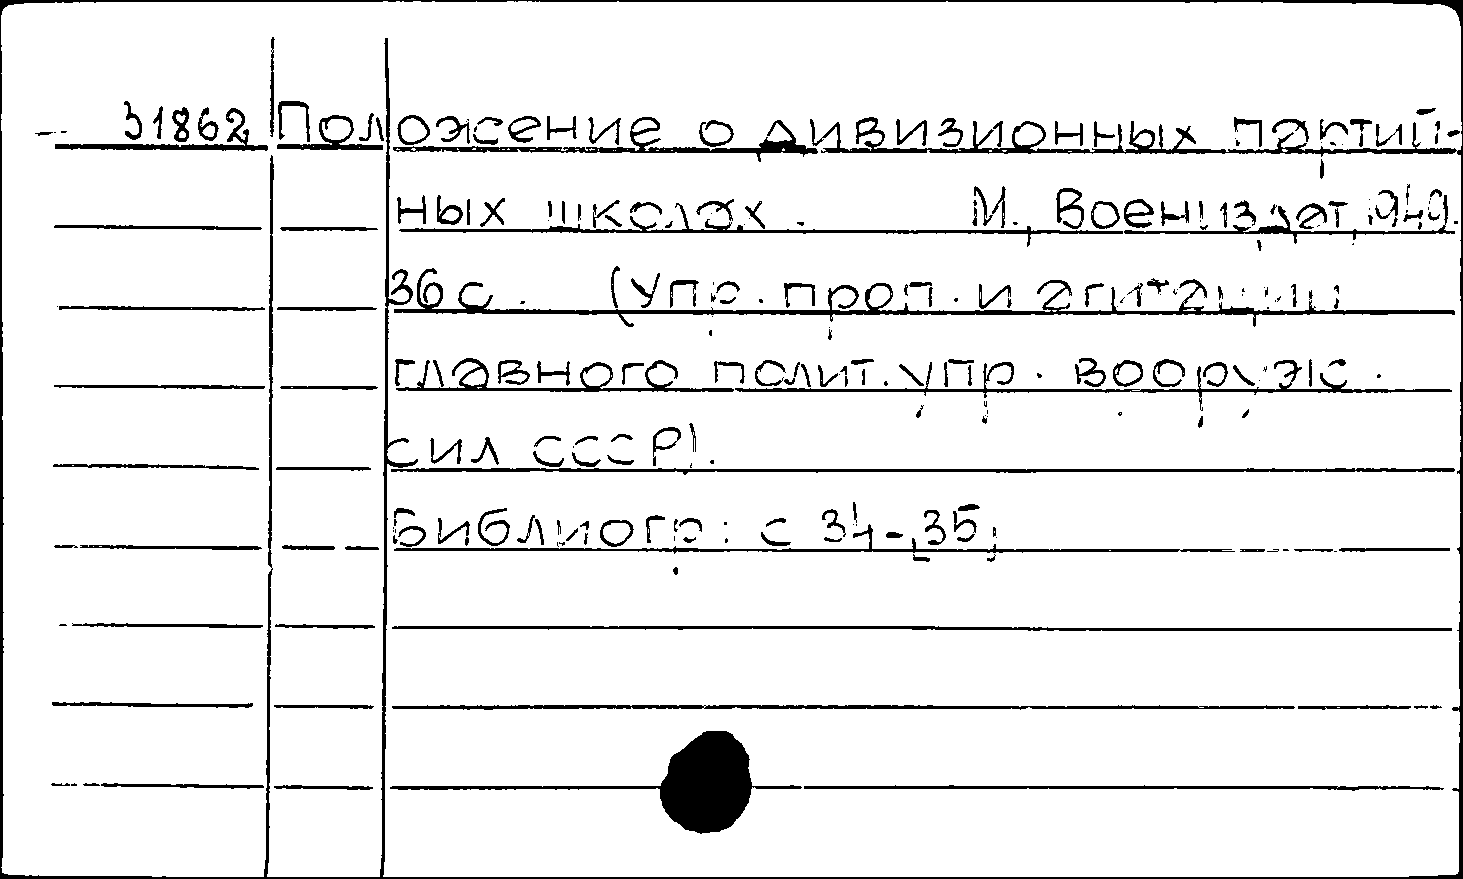 31862 Положение о дивизионных партий-
ных школах. М., Воениздат, 1949.
36 с. (Упр. проп. и агитации
главного полит. упр. вооруж.
сил СССР).
Библиогр: с 34-35,